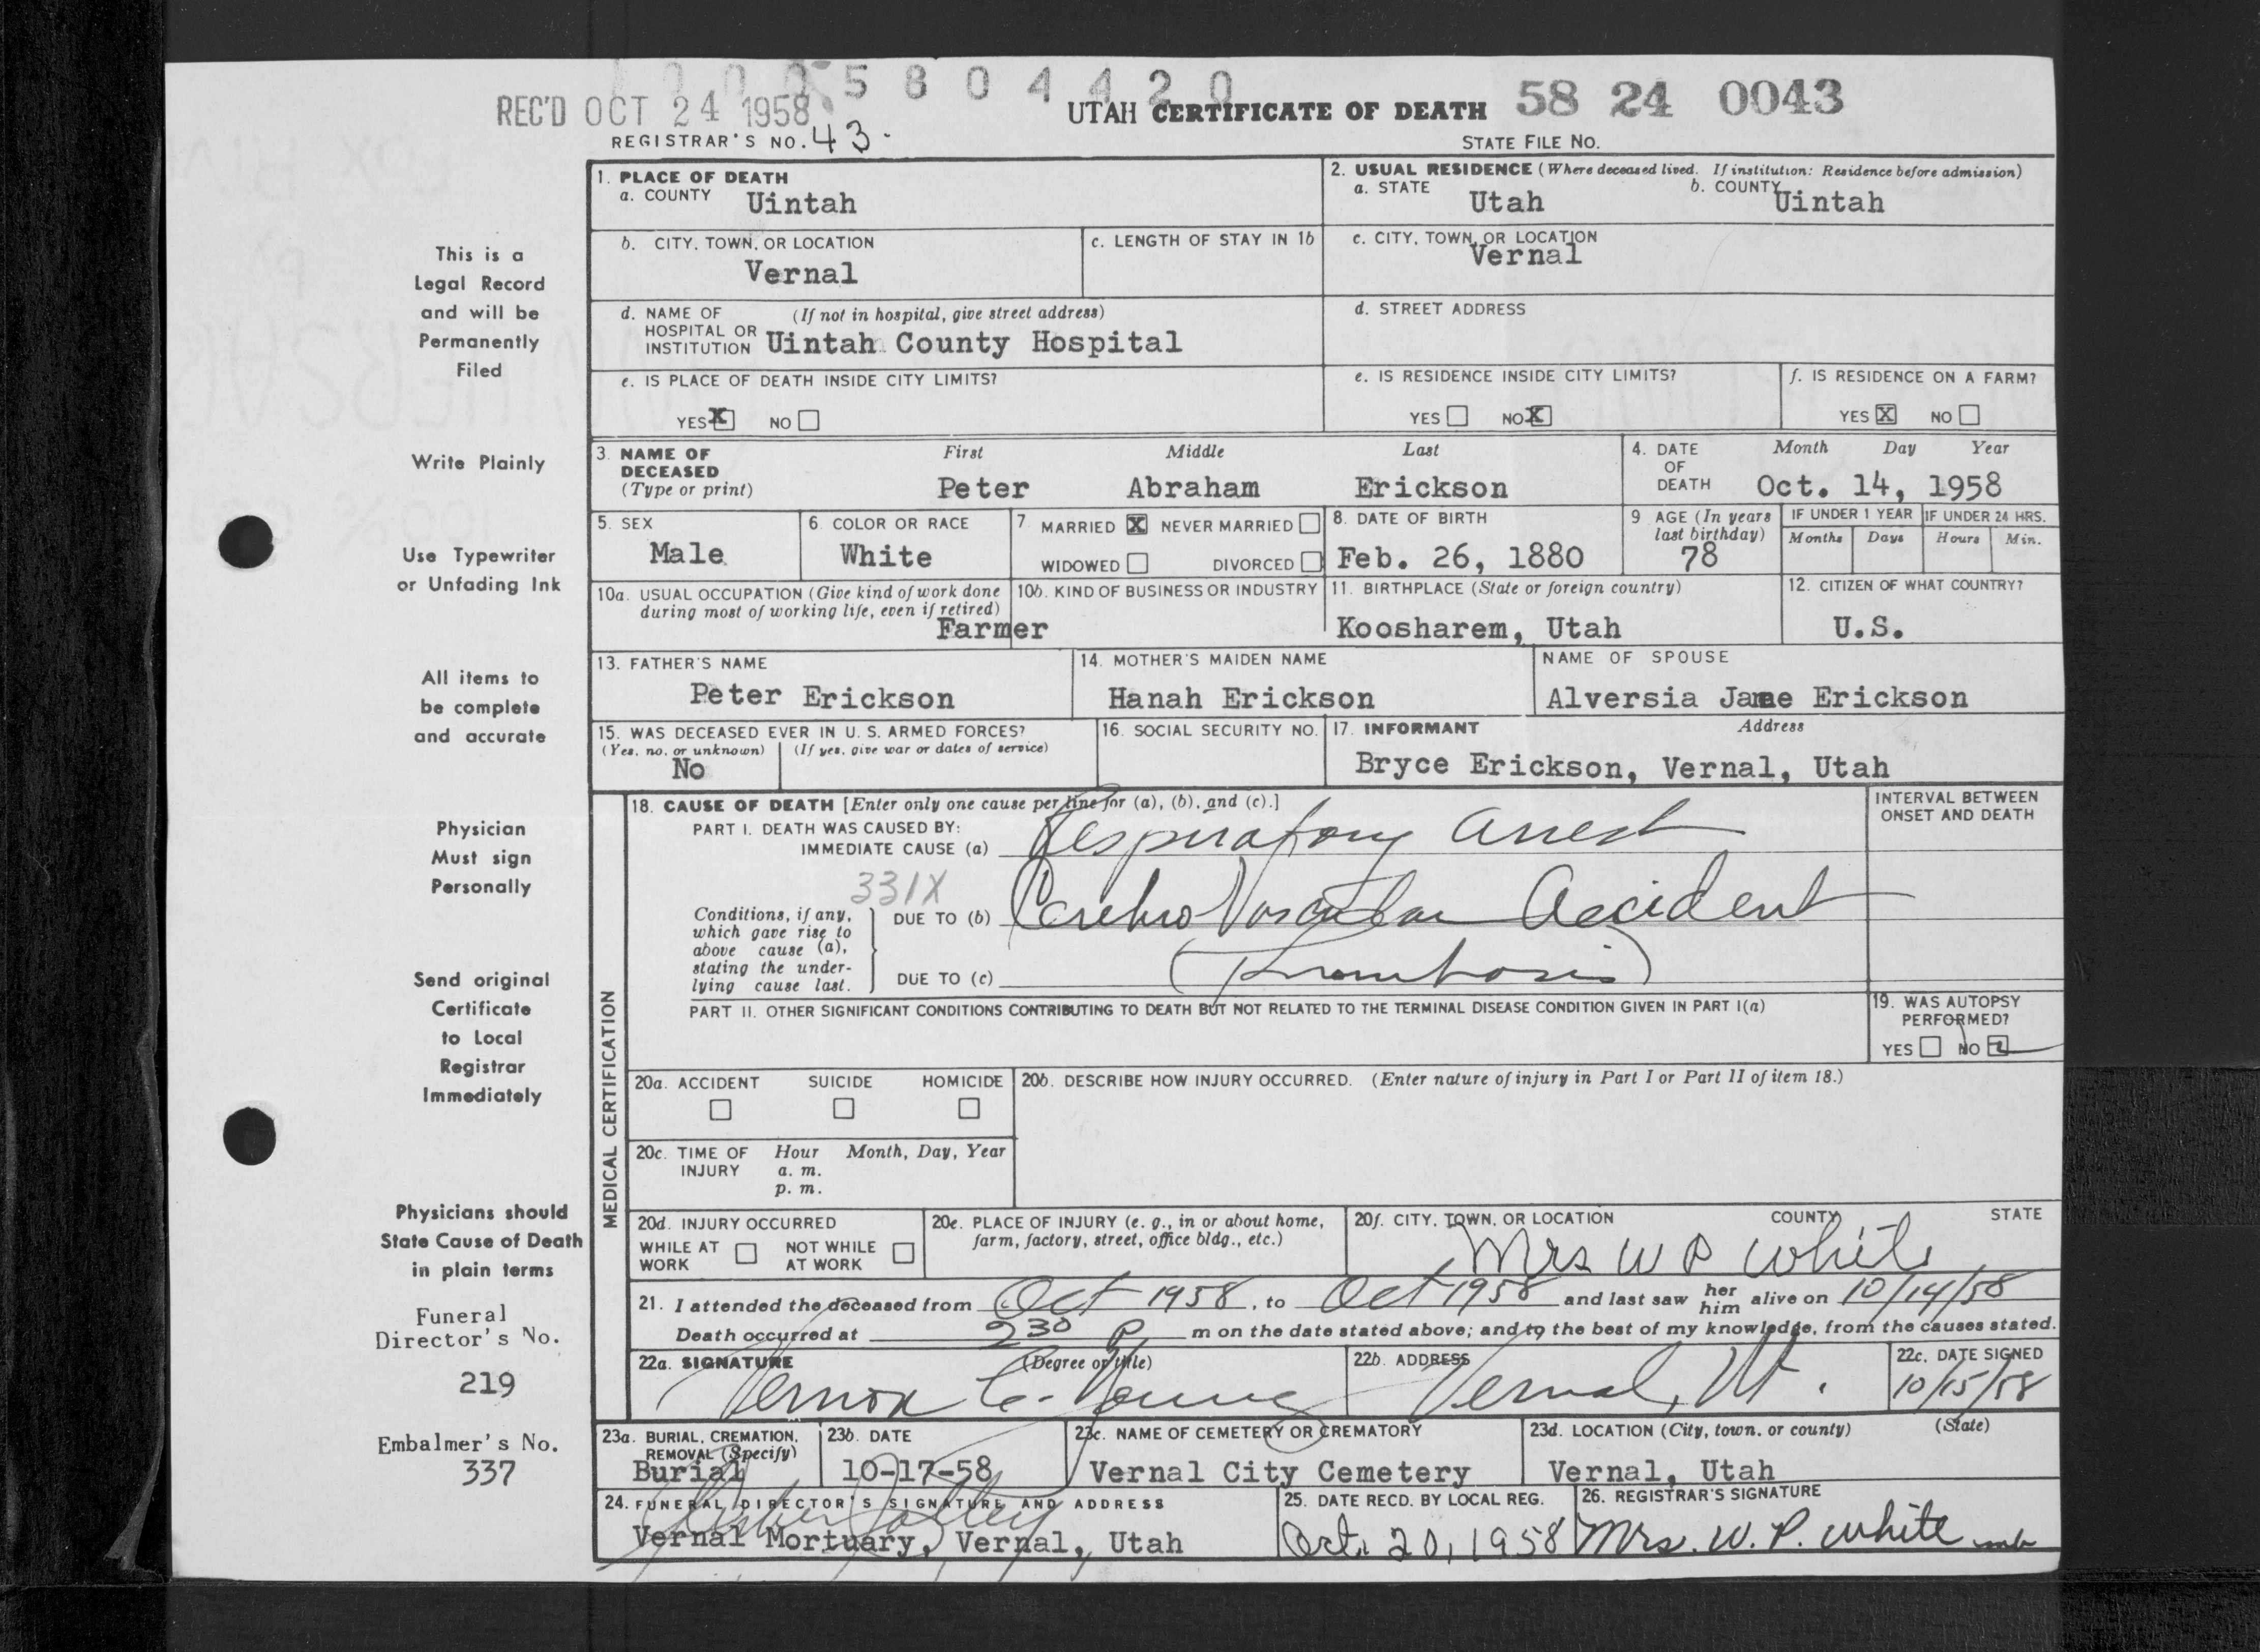 1 0 0 0 5 8 0 4 4 2 0
REC'D OCT 24 1958
UTAH CERTIFICATE OF DEATH 58 24 0043
REGISTRAR'S NO. 43.
STATE FILE NO.
1. PLACE OF DEATH
a. COUNTY Uintah
2. USUAL RESIDENCE (Where deceased lived. If institution: Residence before admission)
a. STATE Utah b. COUNTY Uintah
b. CITY, TOWN, OR LOCATION Vernal
c. LENGTH OF STAY IN 1b
c. CITY, TOWN, OR LOCATION Vernal
d. NAME OF (If not in hospital, give street address)
HOSPITAL OR
INSTITUTION Uintah County Hospital
d. STREET ADDRESS
e. IS PLACE OF DEATH INSIDE CITY LIMITS?
YES X NO
e. IS RESIDENCE INSIDE CITY LIMITS?
YES NO X
f. IS RESIDENCE ON A FARM?
YES X NO
3. NAME OF
DECEASED
(Type or print)
First Middle Last
Peter Abraham Erickson
4. DATE
OF
DEATH
Month Day Year
Oct. 14, 1958
5. SEX
Male
6. COLOR OR RACE
White
7 MARRIED X NEVER MARRIED
WIDOWED DIVORCED
8. DATE OF BIRTH
Feb. 26, 1880
9 AGE (In years
last birthday)
78
IF UNDER 1 YEAR
Months Days
IF UNDER 24 HRS.
Hours Min.
10a. USUAL OCCUPATION (Give kind of work done
during most of working life, even if retired)
Farmer
10b. KIND OF BUSINESS OR INDUSTRY
11. BIRTHPLACE (State or foreign country)
Koosharem, Utah
12. CITIZEN OF WHAT COUNTRY?
U.S.
13. FATHER'S NAME
Peter Erickson
14. MOTHER'S MAIDEN NAME
Hanah Erickson
NAME OF SPOUSE
Alversia Jane Erickson
15. WAS DECEASED EVER IN U. S. ARMED FORCES?
(Yes, no, or unknown) (If yes, give war or dates of service)
No
16. SOCIAL SECURITY NO.
17. INFORMANT Address
Bryce Erickson, Vernal, Utah
MEDICAL CERTIFICATION
18. CAUSE OF DEATH [Enter only one cause per line for (a), (b), and (c).]
PART I. DEATH WAS CAUSED BY:
IMMEDIATE CAUSE (a) Respiratory Arrest
331X
Conditions, if any,
which gave rise to
above cause (a),
stating the under-
lying cause last.
DUE TO (b) Cerebro Vascular Accident
DUE TO (c) (Thrombosis)
INTERVAL BETWEEN
ONSET AND DEATH
PART II. OTHER SIGNIFICANT CONDITIONS CONTRIBUTING TO DEATH BUT NOT RELATED TO THE TERMINAL DISEASE CONDITION GIVEN IN PART I(a)
19. WAS AUTOPSY
PERFORMED?
YES NO
20a. ACCIDENT SUICIDE HOMICIDE
20b. DESCRIBE HOW INJURY OCCURRED. (Enter nature of injury in Part I or Part II of item 18.)
20c. TIME OF
INJURY
Hour Month, Day, Year
a. m.
p. m.
20d. INJURY OCCURRED
WHILE AT
WORK
NOT WHILE
AT WORK
20e. PLACE OF INJURY (e. g., in or about home,
farm, factory, street, office bldg., etc.)
20f. CITY, TOWN, OR LOCATION COUNTY STATE
Mrs W P White
21. I attended the deceased from Oct 1958, to Oct 1958 and last saw her him alive on 10/14/58
Death occurred at 2 30 P m on the date stated above; and to the best of my knowledge, from the causes stated.
22a. SIGNATURE (Degree or title)
Vernon C. Young
22b. ADDRESS
Vernal, Ut.
22c. DATE SIGNED
10/15/58
23a. BURIAL, CREMATION,
REMOVAL (Specify)
Burial
23b. DATE
10-17-58
23c. NAME OF CEMETERY OR CREMATORY
Vernal City Cemetery
23d. LOCATION (City, town, or county) (State)
Vernal, Utah
24. FUNERAL DIRECTOR'S SIGNATURE AND ADDRESS
Vernal Mortuary, Vernal, Utah
25. DATE RECD. BY LOCAL REG.
Oct. 20, 1958
26. REGISTRAR'S SIGNATURE
Mrs. W. P. White
This is a
Legal Record
and will be
Permanently
Filed
Write Plainly
Use Typewriter
or Unfading Ink
All items to
be complete
and accurate
Physician
Must sign
Personally
Send original
Certificate
to Local
Registrar
Immediately
Physicians should
State Cause of Death
in plain terms
Funeral
Director's No.
219
Embalmer's No.
337